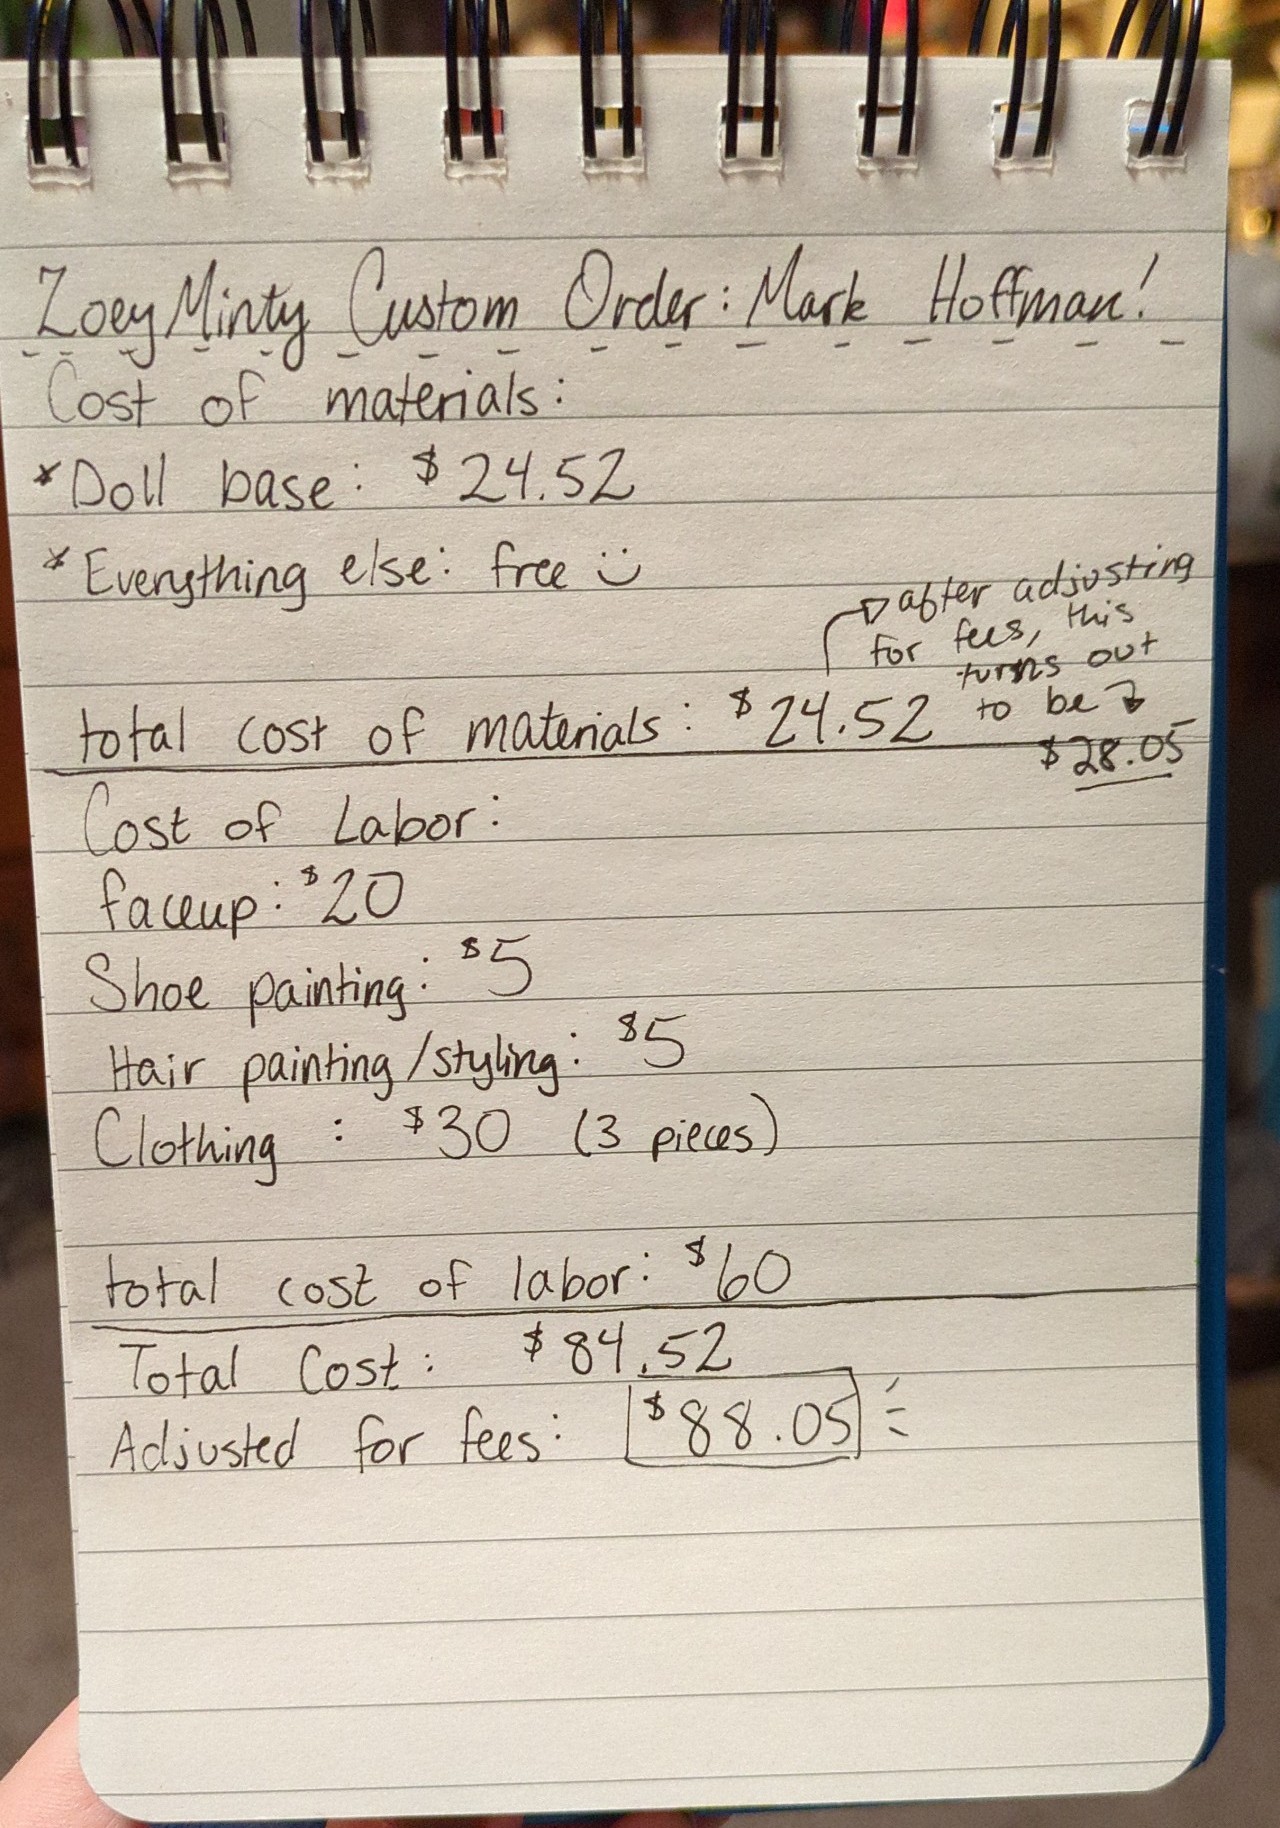 ZoeyMinty Custom Order: Mark Hoffman!
Cost of materials:
* Doll base: $24.52
* Everything else: free :)
after adjusting
for fees, this
turns out
to be
$28.05
total cost of materials: $24.52
Cost of Labor:
faceup: $20
Shoe painting: $5
Hair painting/styling: $5
Clothing : $30 (3 pieces)
total cost of labor: $60
Total Cost: $84.52
Adjusted for fees: $88.05